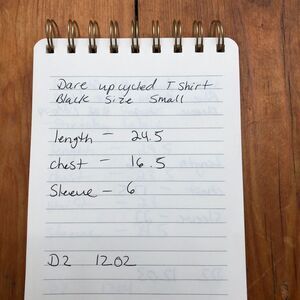 Dare upcycled T shirt
Black size small
length - 24.5
chest - 16.5
Sleeve - 6
D2 1202